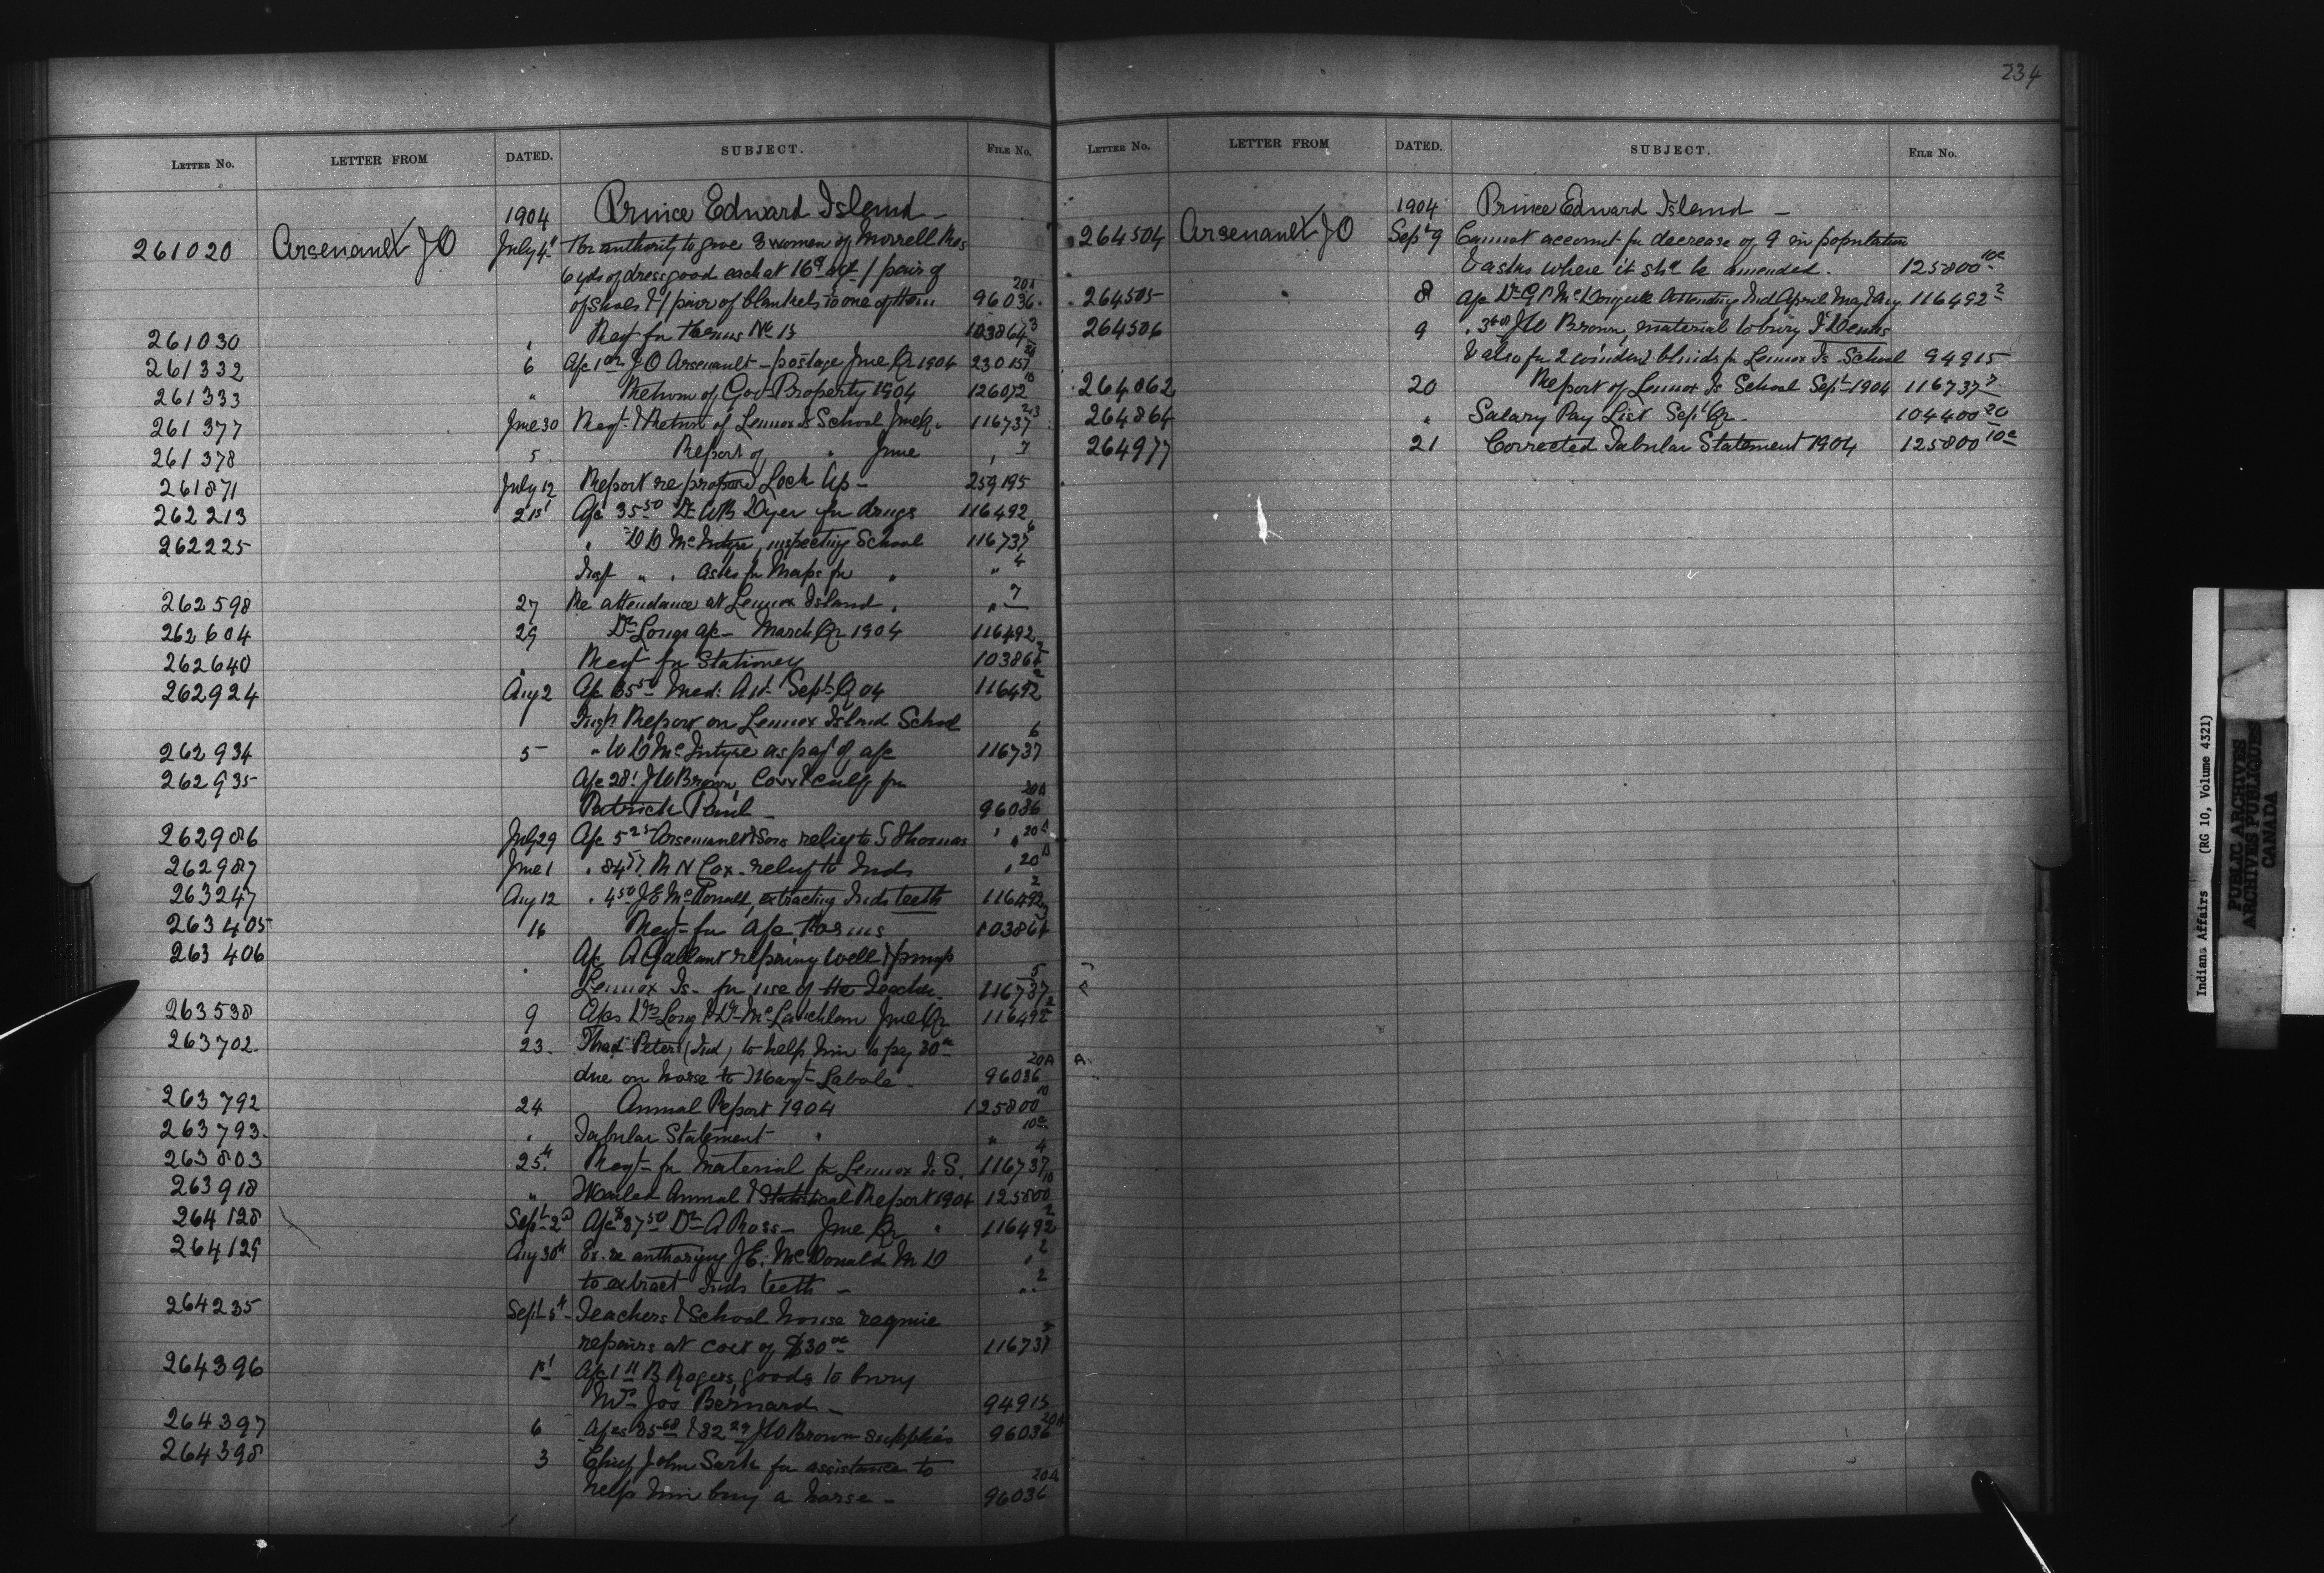 234
LETTER NO. LETTER FROM DATED. SUBJECT. FILE NO.
1904 Prince Edward Island -
261020 Arsenault JO July 4th For authority to give 3 women of Morrell Res
6 yds of dress good each at 16c a yd 1 pair of
of shoes & 1 pair of blankets to one of them 96036 20A
261030 " Reqt for Forms No 13 103864 3
261332 6 A/c 1 00 JO Arsenault - postage June Qr 1904 230157
261333 " Return of Govt Property 1904 126072
261377 June 30 Reqt & Return of Lennox Is School June Q. 116737
261378 5 Report of " June " 7
261871 July 12 Report re proposed Lock Up - 259195
262213 21st A/c 35 50 Dr WB Dyer for drugs 116492
262225 " D McIntyre, inspecting School 116737 6
Insp " " asks for Maps for " " 4
262598 27 Re attendance at Lennox Island " " 7
262604 29 Dr Longs a/c - March Qr 1904 116492
262640 " Reqt for Stationery 103864
262924 Aug 2 A/c 35 50 Med: Att. Sept Q 04 116492 2
Insp Report on Lennox Island School 6
262934 5 " McIntyre as part of a/c 116737
262935 A/c 28. JW Brown, Cow & calf for
Patrick Paul - 96036 20A
262986 July 29 A/c 5 25 Arsenault & Sons relief to S Thomas " 20A
262987 June 1 " 84 57 R N Cox. relief to Inds " 20A
263247 Aug 12 " 4 50 J E McDonald, extracting Inds teeth 116492 2
263405 16 Reqt for a/c Forms 103864 3
263406 " A/c A Gallant repairing well & pump
Lennox Is - for use of the Teacher. 116737 5
263538 9 A/cs Dr Long & Dr McLauchlan June Qr 116492 2
263702. 23. Thad Peters (Ind) to help him to pay 30 00
due on horse to Margt Labole - 96036 20A
263792 24 Annual Report 1904 125800 10
263793. " Tabular Statement " " 10a
263803 25th Reqt for Material for Lennox Is S. 116737 4
263918 " Mailed Annual & Statistical Report 1904 125800 10
264128 Sept 2d A/c $37 50 Dr A Ross - June Qr " 116492 2
264129 Aug 30th Ex. re authorizing J E. McDonald M D " 2
to extract Inds teeth - " 2
264235 Sept 5th Teachers & School house require
repairs at cost of $30 00 116737 5
264396 1st A/c 11 B Rogers, goods to bury
Mrs Jos Bernard - 94915
264397 6 A/cs 35 68 & 32 29 JW Brown supplies 96036 20A
264398 3 Chief John Sark for assistance to
help him buy a horse - 96036 20A
LETTER NO. LETTER FROM DATED. SUBJECT. FILE NO.
1904 Prince Edward Island -
264504 Arsenault JO Sept 9 Cannot account for decrease of 9 in population
& asks where it shd be amended. 125800 10a
264505 8 A/c Dr McDougall Attending Ind April May & Aug 116492 2
264506 9 " JW Brown, material to bury Dennis
& also for 2 window blinds for Lennox Is School 94915
264862 20 Report of Lennox Is School Sept 1904 116737 7
264864 " Salary Pay List Sept Qr - 104400 20
264977 21 Corrected Tabular Statement 1904 125800 10a
Indian Affairs (RG 10, Volume 4321)
PUBLIC ARCHIVES
ARCHIVES PUBLIQUES
CANADA